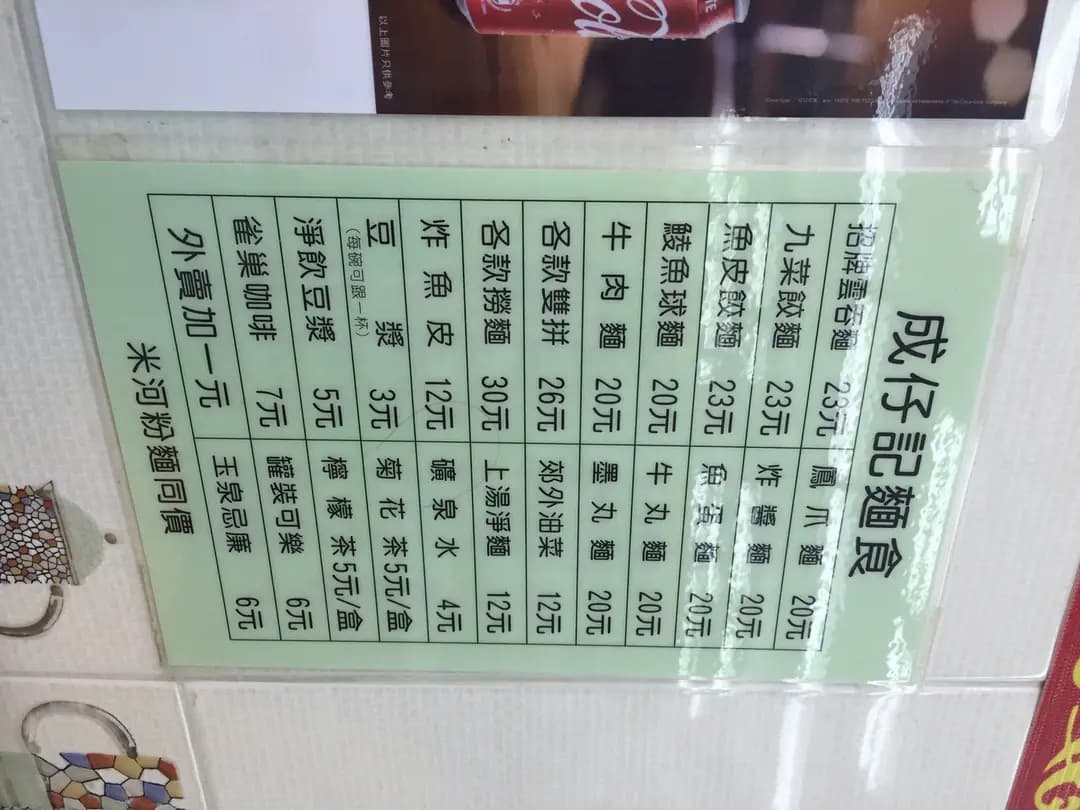 以上圖片只供參考
成仔記麵食
招牌雲吞麵 23元 鳳爪麵 20元
九菜餃麵 23元 炸醬麵 20元
魚皮餃麵 23元 魚蛋麵 20元
鯪魚球麵 20元 牛丸麵 20元
牛肉麵 20元 墨丸麵 20元
各款雙拼 26元 郊外油菜 12元
各款撈麵 30元 上湯淨麵 12元
炸魚皮 12元 礦泉水 4元
豆漿 3元 菊花茶 5元/盒
(每碗可跟一杯)
淨飲豆漿 5元 檸檬茶 5元/盒
雀巢咖啡 7元 罐裝可樂 6元
外賣加一元 玉泉忌廉 6元
米河粉麵同價